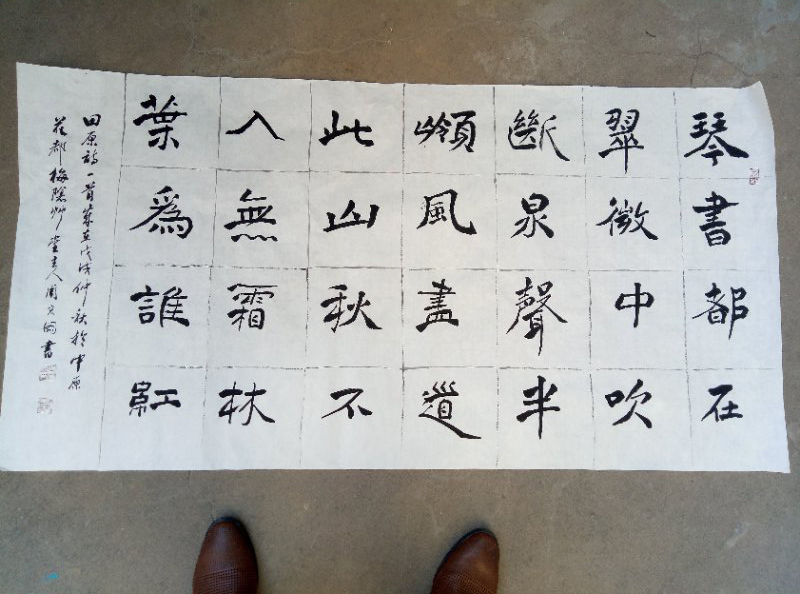 琴書都在
翠微中吹
斷泉聲半
嶺風盡道
此山秋不
入無霜林
葉為誰紅
田原詩一首 歲在戊戌仲秋於中原
花都梅隱草堂主人周
書